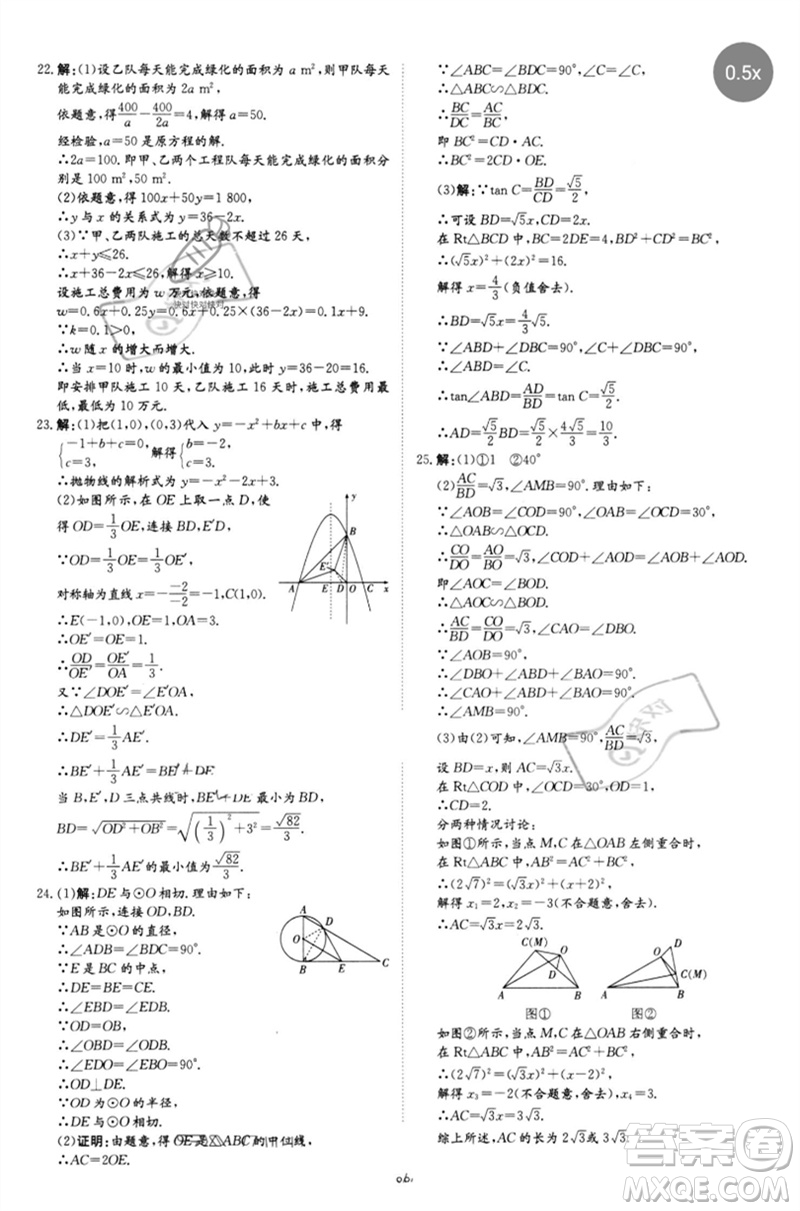 22.解:(1)设乙队每天能完成绿化的面积为 a m²,则甲队每天
能完成绿化的面积为 2a m²,
依题意,得400/a－400/2a＝4,解得 a＝50.
经检验,a＝50 是原方程的解.
∴2a＝100.即甲、乙两个工程队每天能完成绿化的面积分
别是 100 m²,50 m².
(2)依题意,得 100x＋50y＝1 800,
∴y 与 x 的关系式为 y＝36－2x.
(3)∵甲、乙两队施工的总天数不超过 26 天,
∴x＋y≤26.
∴x＋36－2x≤26,解得 x≥10.
设施工总费用为 w 万元,依题意,得
w＝0.6x＋0.25y＝0.6x＋0.25×(36－2x)＝0.1x＋9.
∵k＝0.1＞0,
∴w 随 x 的增大而增大.
∴当 x＝10 时,w 的最小值为 10,此时 y＝36－20＝16.
即安排甲队施工 10 天,乙队施工 16 天时,施工总费用最
低,最低为 10 万元.
23.解:(1)把(1,0),(0,3)代入 y＝－x²＋bx＋c 中,得
{－1＋b＋c＝0, c＝3, 解得{b＝－2, c＝3.
∴抛物线的解析式为 y＝－x²－2x＋3.
(2)如图所示,在 OE 上取一点 D,使
得 OD＝1/3 OE,连接 BD,E′D.
∵OD＝1/3 OE＝1/3,
对称轴为直线 x＝－－2/－2＝－1,C(1,0).
∴E(－1,0),OE＝1,OA＝3.
∴OE′＝OE＝1.
∴OD/OE′＝OE′/OA＝1/3.
又∵∠DOE′＝∠E′OA,
∴△DOE′∽△E′OA.
∴DE′＝1/3 AE′.
∴BE′＋1/3 AE′＝BE′＋DE′.
当 B,E′,D 三点共线时,BE′＋DE′最小为 BD,
BD＝√(OD²＋OB²)＝√((1/3)²＋3²)＝√82/3.
∴BE′＋1/3 AE′的最小值为 √82/3.
y B E′ A E D O C x
24.(1)解:DE 与⊙O 相切.理由如下:
如图所示,连接 OD,BD.
∵AB 是⊙O 的直径,
∴∠ADB＝∠BDC＝90°.
∵E 是 BC 的中点,
∴DE＝BE＝CE.
∴∠EBD＝∠EDB.
∵OD＝OB,
∴∠OBD＝∠ODB.
∴∠EDO＝∠EBO＝90°.
∴OD⊥DE.
∵OD 为⊙O 的半径,
∴DE 与⊙O 相切.
A D O B E C
(2)证明:由题意,得 OE 是△ABC 的中位线,
∴AC＝2OE.
∵∠ABC＝∠BDC＝90°,∠C＝∠C,
∴△ABC∽△BDC.
∴BC/DC＝AC/BC.
即 BC²＝CD·AC.
∴BC²＝2CD·OE.
(3)解:∵tan C＝BD/CD＝√5/2,
∴可设 BD＝√5x,CD＝2x.
在 Rt△BCD 中,BC＝2DE＝4,BD²＋CD²＝BC²,
∴(√5x)²＋(2x)²＝16.
解得 x＝4/3(负值舍去).
∴BD＝√5x＝4/3√5.
∵∠ABD＋∠DBC＝∠DBC＋∠C＝90°,
∴∠ABD＝∠C.
∴tan∠ABD＝AD/BD＝tan C＝√5/2.
∴AD＝√5/2 BD＝√5/2×4√5/3＝10/3.
25.解:(1)①1 ②40°
(2)AC/BD＝√3,∠AMB＝90°.理由如下:
∵∠AOB＝∠COD＝90°,∠OAB＝∠OCD＝30°,
∴△OAB∽△OCD.
∴CO/DO＝AO/BO＝√3,∠COD＋∠AOD＝∠AOB＋∠AOD.
即∠AOC＝∠BOD.
∴△AOC∽△BOD.
∴AC/BD＝CO/DO＝√3,∠CAO＝∠DBO.
∵∠AOB＝90°,
∴∠DBO＋∠ABD＋∠BAO＝90°.
∴∠CAO＋∠ABD＋∠BAO＝90°.
∴∠AMB＝90°.
(3)由(2)可知,∠AMB＝90°,AC/BD＝√3,
设 BD＝x,则 AC＝√3x.
在 Rt△COD 中,∠OCD＝30°,OD＝1,
∴CD＝2.
分两种情况讨论:
如图①所示,当点 M,C 在△OAB 左侧重合时,
在 Rt△ABC 中,AB²＝AC²＋BC²,
∴(2√7)²＝(√3x)²＋(x＋2)².
解得 x₁＝2,x₂＝－3(不合题意,舍去).
∴AC＝√3x＝2√3.
C(M) O D A B 图①
O D C(M) A B 图②
如图②所示,当点 M,C 在△OAB 右侧重合时,
在 Rt△ABC 中,AB²＝AC²＋BC²,
∴(2√7)²＝(√3x)²＋(x－2)².
解得 x₃＝－2(不合题意,舍去),x₄＝3.
∴AC＝√3x＝3√3.
综上所述,AC 的长为 2√3或 3√3.
0.5x
快对快对快对
快对
答案圈